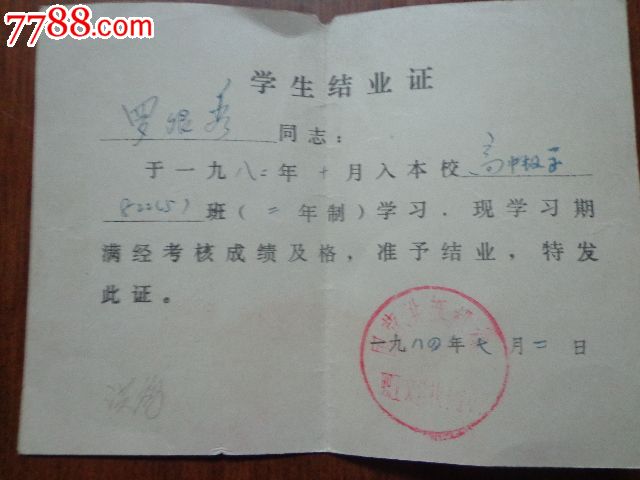 7788.com
学生结业证
罗银秀同志：
于一九八二年十月入本校高中数学
822(5)班(二年制)学习．现学习期
满经考核成绩及格，准予结业，特发
此证。
一九八四年七月二日